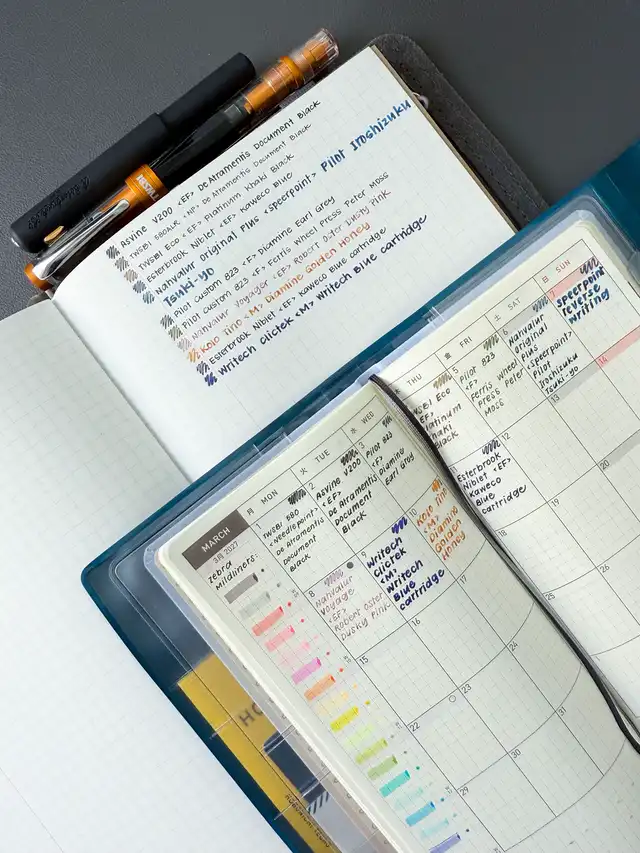 Asvine V200 <EF> De Atramentis Document Black
TWSBI 580ALR <NP> De Atramentis Document Black
TWSBI Eco <EF> Platinum Khaki Black
Esterbrook Niblet <EF> Kaweco Blue
Nahvalur Original Plus <Speerpoint> Pilot Iroshizuku
Tsuki-yo
Pilot Custom 823 <F> Diamine Earl Grey
Pilot Custom 823 <F> Ferris Wheel Press Peter Moss
Nahvalur Voyager <EF> Robert Oster Dusty Pink
Kolo Tino <M> Diamine Golden Honey
Esterbrook Niblet <EF> Kaweco Blue cartridge
Writech Clictek <M> Writech Blue cartridge
MARCH
3月 2027
Zebra
Mildliners:
月 MON
火 TUE
水 WED
THU
金 FRI
土 SAT
日 SUN
1
TWSBI 580
<Needlepoint>
De Atramentis
Document
Black
2
Asvine
V200
<EF>
De Atramentis
Document
Black
3
Pilot 823
<F>
Diamine
Earl Grey
TWSBI Eco
<EF>
Platinum
Khaki
Black
5
Pilot 823
<F>
Ferris Wheel
Press Peter
Moss
6
Nahvalur
Original
Plus
<Speerpoint>
Pilot
Iroshizuku
Tsuki-yo
7
Speerpoint
reverse
writing
8
Nahvalur
Voyage
<EF>
Robert Oster
Dusky Pink
9
Writech
Clictek
<M>
Writech
Blue
cartridge
10
Kolo
Tino
<M>
Diamine
Golden
Honey
11
Esterbrook
Niblet <EF>
Kaweco
Blue
cartridge
12
13
14
15
16
17
18
19
20
22
23
24
29
30
31